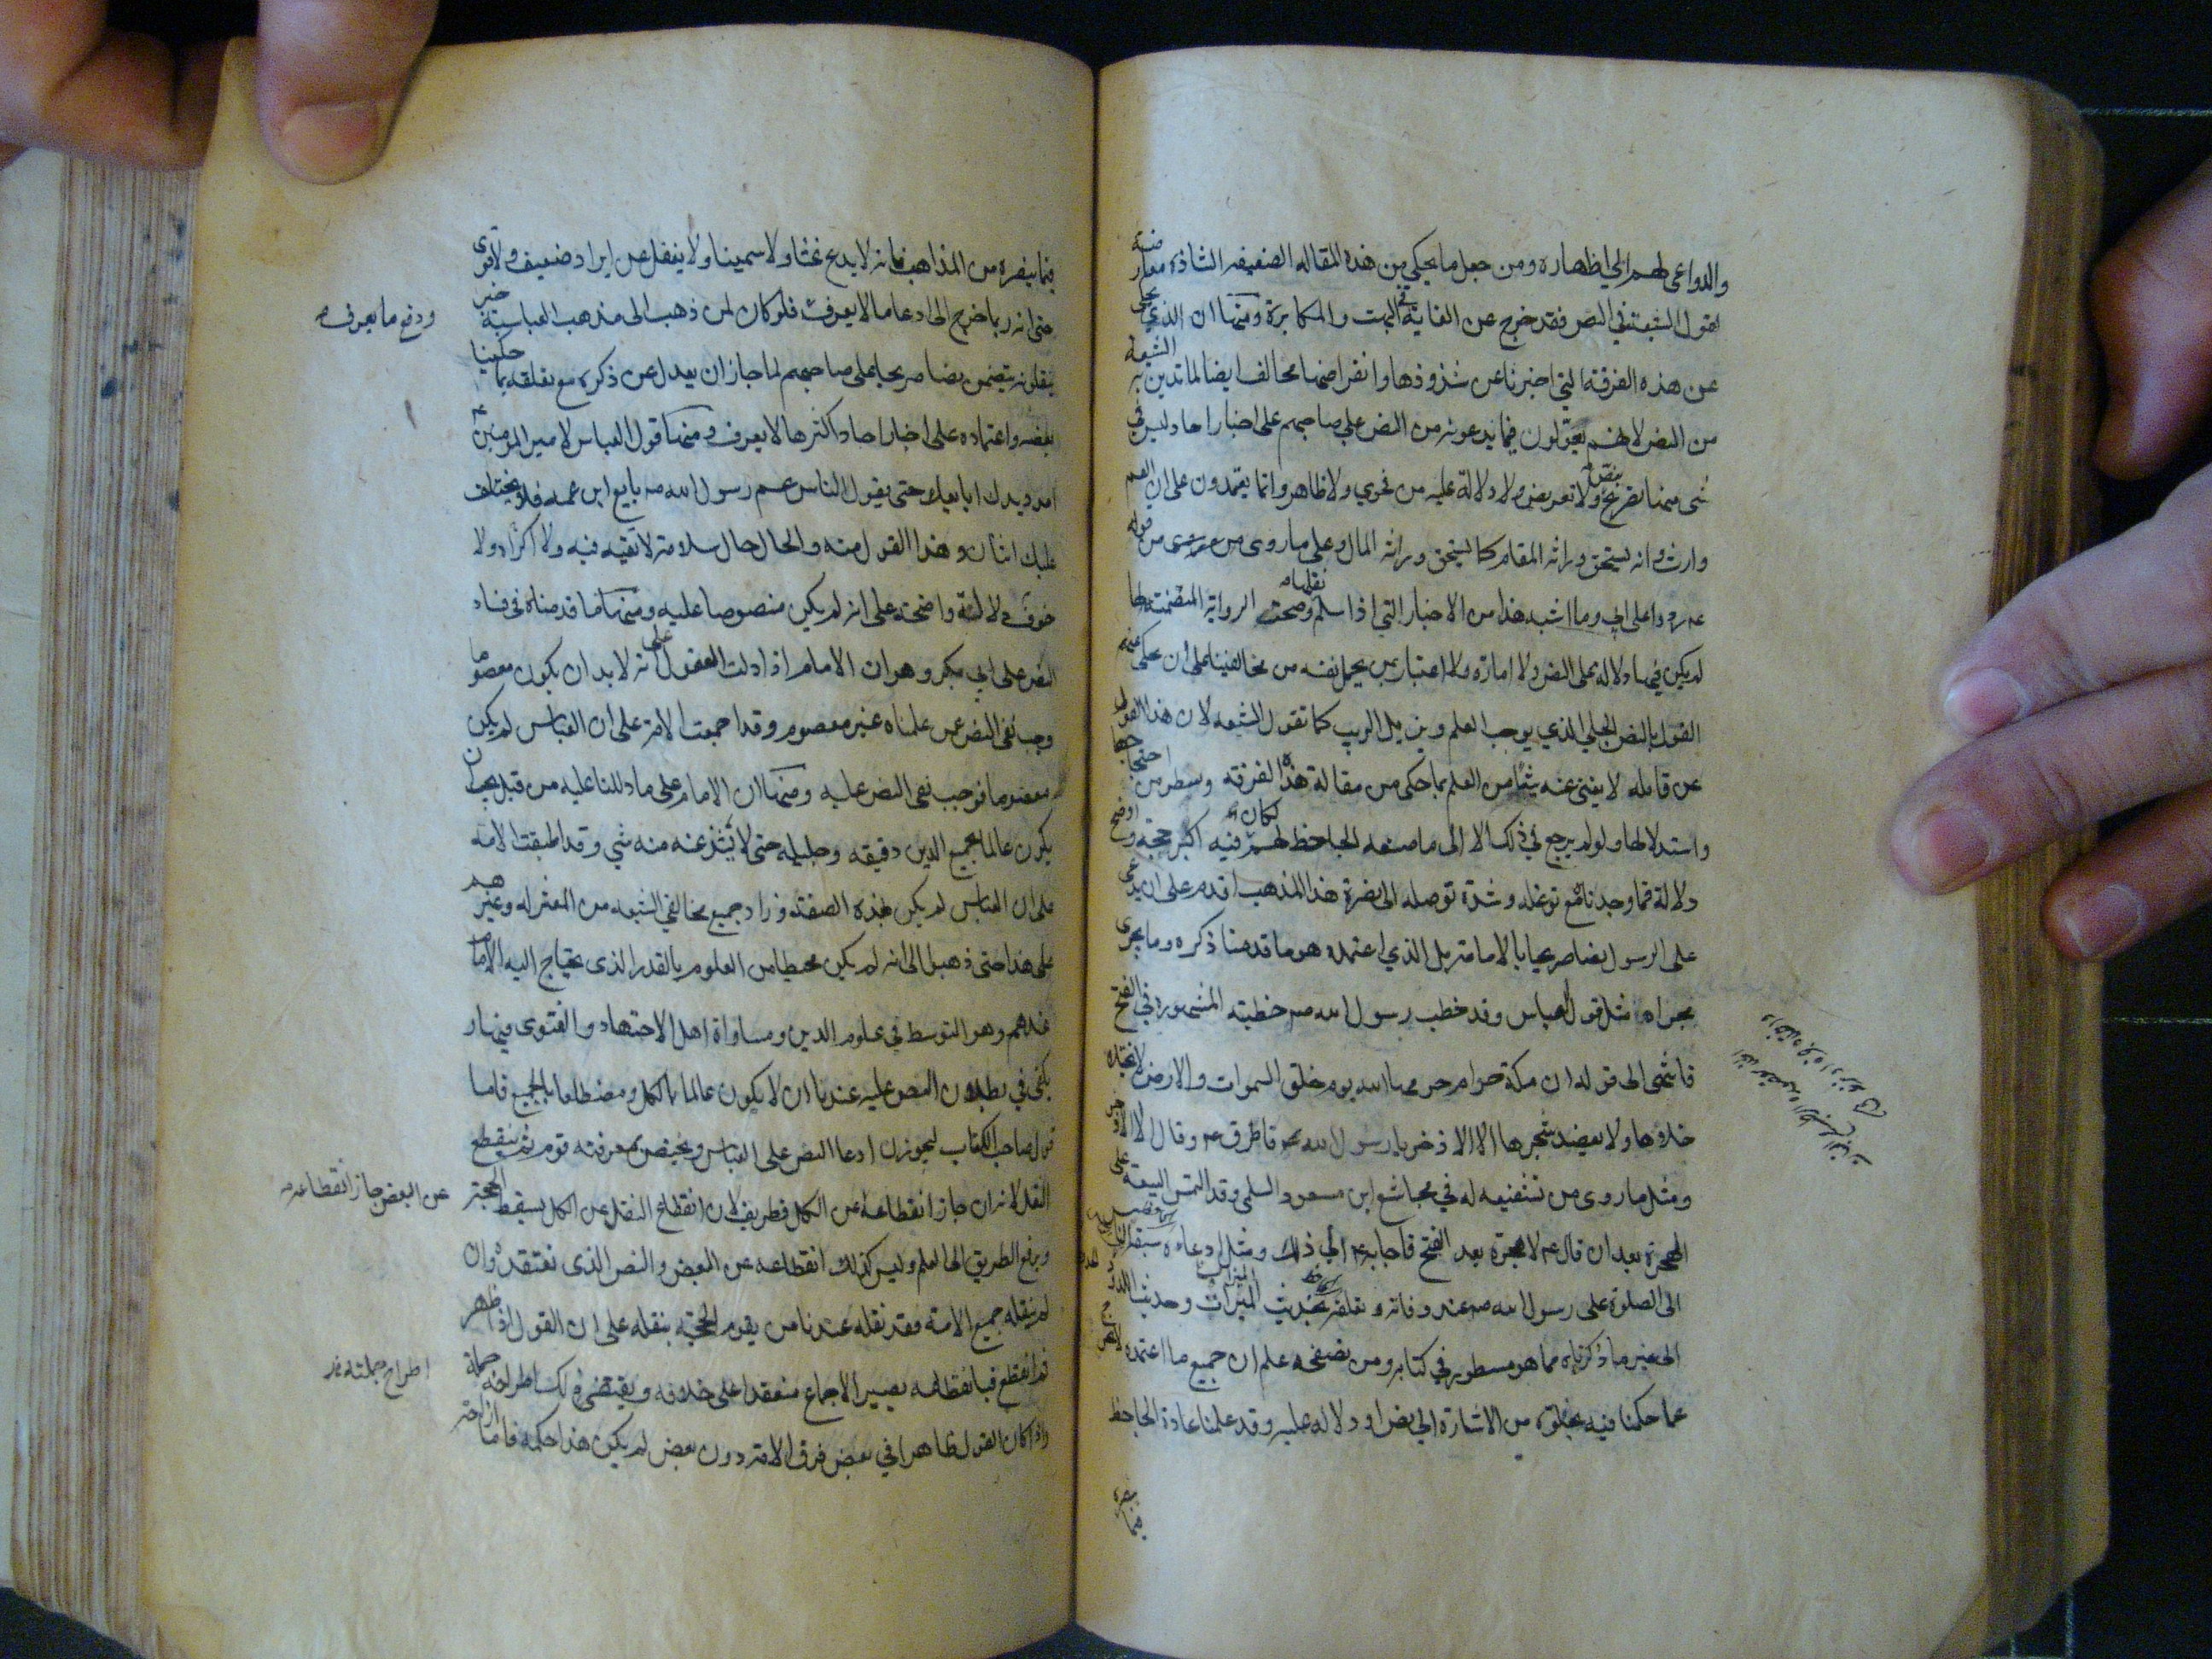 والدواعي لهم الى اظهاره ومن جعل ما يحكي من هذه المقاله الضعيفه الشاذة معارضة
لقول الشيعة في النص فقد خرج عن الغاية في البهت والمكابرة ومنها ان الذي يحكى
عن هذه الفرقة التي اخبرنا عن شذوذها وانقراضها مخالف ايضا لما تدين به الشيعة
من النص لانهم يعولون فيما يدعونه من النص على صاحبهم على اخبار احاد ليس في
شى منها تصريح بنص ولا تعريض ولا دلالة عليه من فحوي ولا ظاهر وانما يعتمدون على ان العم
وارث وانه يستحق وراثه المقام كما يستحق وراثه المال وعلى ما روى من قوله
ردوا على ابي وما اشبه هذا من الاخبار التي اذا سلم نقلها وصحت الرواية المتضمنة لها
لم يكن فيها دلاله على النص ولا امارة ولا اعتبار بمن يحمل نفسه من مخالفينا على ان يحكى عنهم
القول بالنص الجلي الذي يوجب العلم ويزيل الريب كما تقول الشيعه لان هذا القول
عن قائله لا يغني عنه شيئا من العلم بما حكى من مقالة هذه الفرقه وسطر من احتجاجها
واستدلالها ولو لم يرجع في ذلك الا الى ما صنعه الجاحظ لهم لكان فيه اكبر حجة واوضح
دلالة فما وجدناه مع توغله وشدة توصله الى نصرة هذا المذهب اقدم على ان يدعى
على الرسول نصا صريحا بالامامة بل الذي اعتمده هو ما قدمنا ذكره وما يجرى
مجراه مثل قول العباس وقد خطب رسول الله ص خطبته المشهوره في الفتح
فانتهى الى قوله ان مكة حرام حرمها الله يوم خلق السموات والارض لا يختلى
خلاوها ولا يعضد شجرها الا الاذخر يا رسول الله فاطرق وقال الا الاذخر
ومثل ما روى من تشفيعه له في مجاشع ابن مسعود السلمى وقد التمس البيعة على
الهجرة بعد ان قال لا هجرة بعد الفتح فاجابه الى ذلك ومثل ادعاءه سبقه
الى الصلوة على رسول الله ص عند وفاته وتعلقه بحديث الميراث وحديث اللدود
الى غير ما ذكرناه مما هو مسطور في كتابه ومن تصفحه علم ان جميع ما اعتمده لا يخرج
عما حكمنا فيه بخلوه من الاشارة الى نص او دلاله عليه وقد علمنا عادة الجاحظ
فيما ينصره
فيما ينصره من المذاهب فانه لا يدع غثا ولا سمينا ولا يغفل عن ايراد ضعيف ولا قوى
حتى انه ربما خرج الى ادعا ما لا يعرف فلو كان لمن ذهب الى مذهب العباسية خبر
ودفع ما يعرف
ينقلونه يتضمن نصا صريحا على صاحبهم لما جاز ان يعدل عن ذكره مع تعلقه بما حكينا
بعضه واعتماده على اخبار احاد اكثرها لا يعرف ومنها قول العباس لامير المومنين
امدد يدك ابايعك حتى يقول الناس عم رسول الله ص بايع ابن عمه فلا يختلف
عليك اثنان وهذا القول منه والحال حال سلامة لا تقيه فيه ولا اكراه ولا
خوف دلالة واضحة على انه لم يكن منصوصا عليه ومنها ما قدمناه في فساد
النص على ابي بكر وهو ان الامام اذا دلت العقول على انه لا بد ان يكون معصوما
وجب نفى النص عمن علمناه غير معصوم وقد اجمعت الامة على ان العباس لم يكن
معصوما فوجب نفى النص عليه ومنها ان الامام على ما دللنا عليه من قبل يجب ان
يكون عالما بجميع الدين دقيقه وجليله حتى لا يشذ عنه منه شي وقد اطبقت الامه
على ان العباس لم يكن بهذه الصفة وزاد جميع مخالفي الشيعه من المعتزله وغيرهم
على هذا حتى ذهبوا الى انه لم يكن محيطا من العلوم بالقدر الذى يحتاج اليه الامام
عندهم وهو التوسط في علوم الدين ومساواة اهل الاجتهاد والفتوى فيها
يكفى في بطلان النص عليه عندنا ان لا يكون عالما بالكل ومضطلعا بالجميع فاما
قول صاحب الكتاب ليجوزن ادعا النص على العباس ويختص بمعرفته قوم ثم ينقطع
النقل لانه ان جاز انقطاعه عن الكل فطريف لان انقطاع النقل عن الكل يسقط الحجة
عن البعض جاز انقطاعه
ويرفع الطريق الى العلم وليس كذلك انقطاعه عن البعض والنص الذى نعتقده وان
لم ينقله جميع الامة فقد نقله عندنا من يقوم الحجة بنقله على ان القول اذا ظهر
ثم انقطع فبانقطاعه يصير الاجماع منعقدا على خلافه ويقتضى ذلك اطراحه جملة
اطراح جملته
واذا كان القول ظاهرا في بعض فرق الامة دون بعض لم يكن هذا حكمه فاما